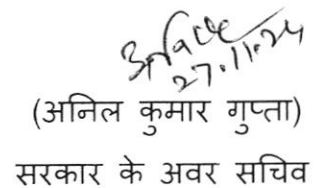 अनिल
27.11.24
(अनिल कुमार गुप्ता)
सरकार के अवर सचिव